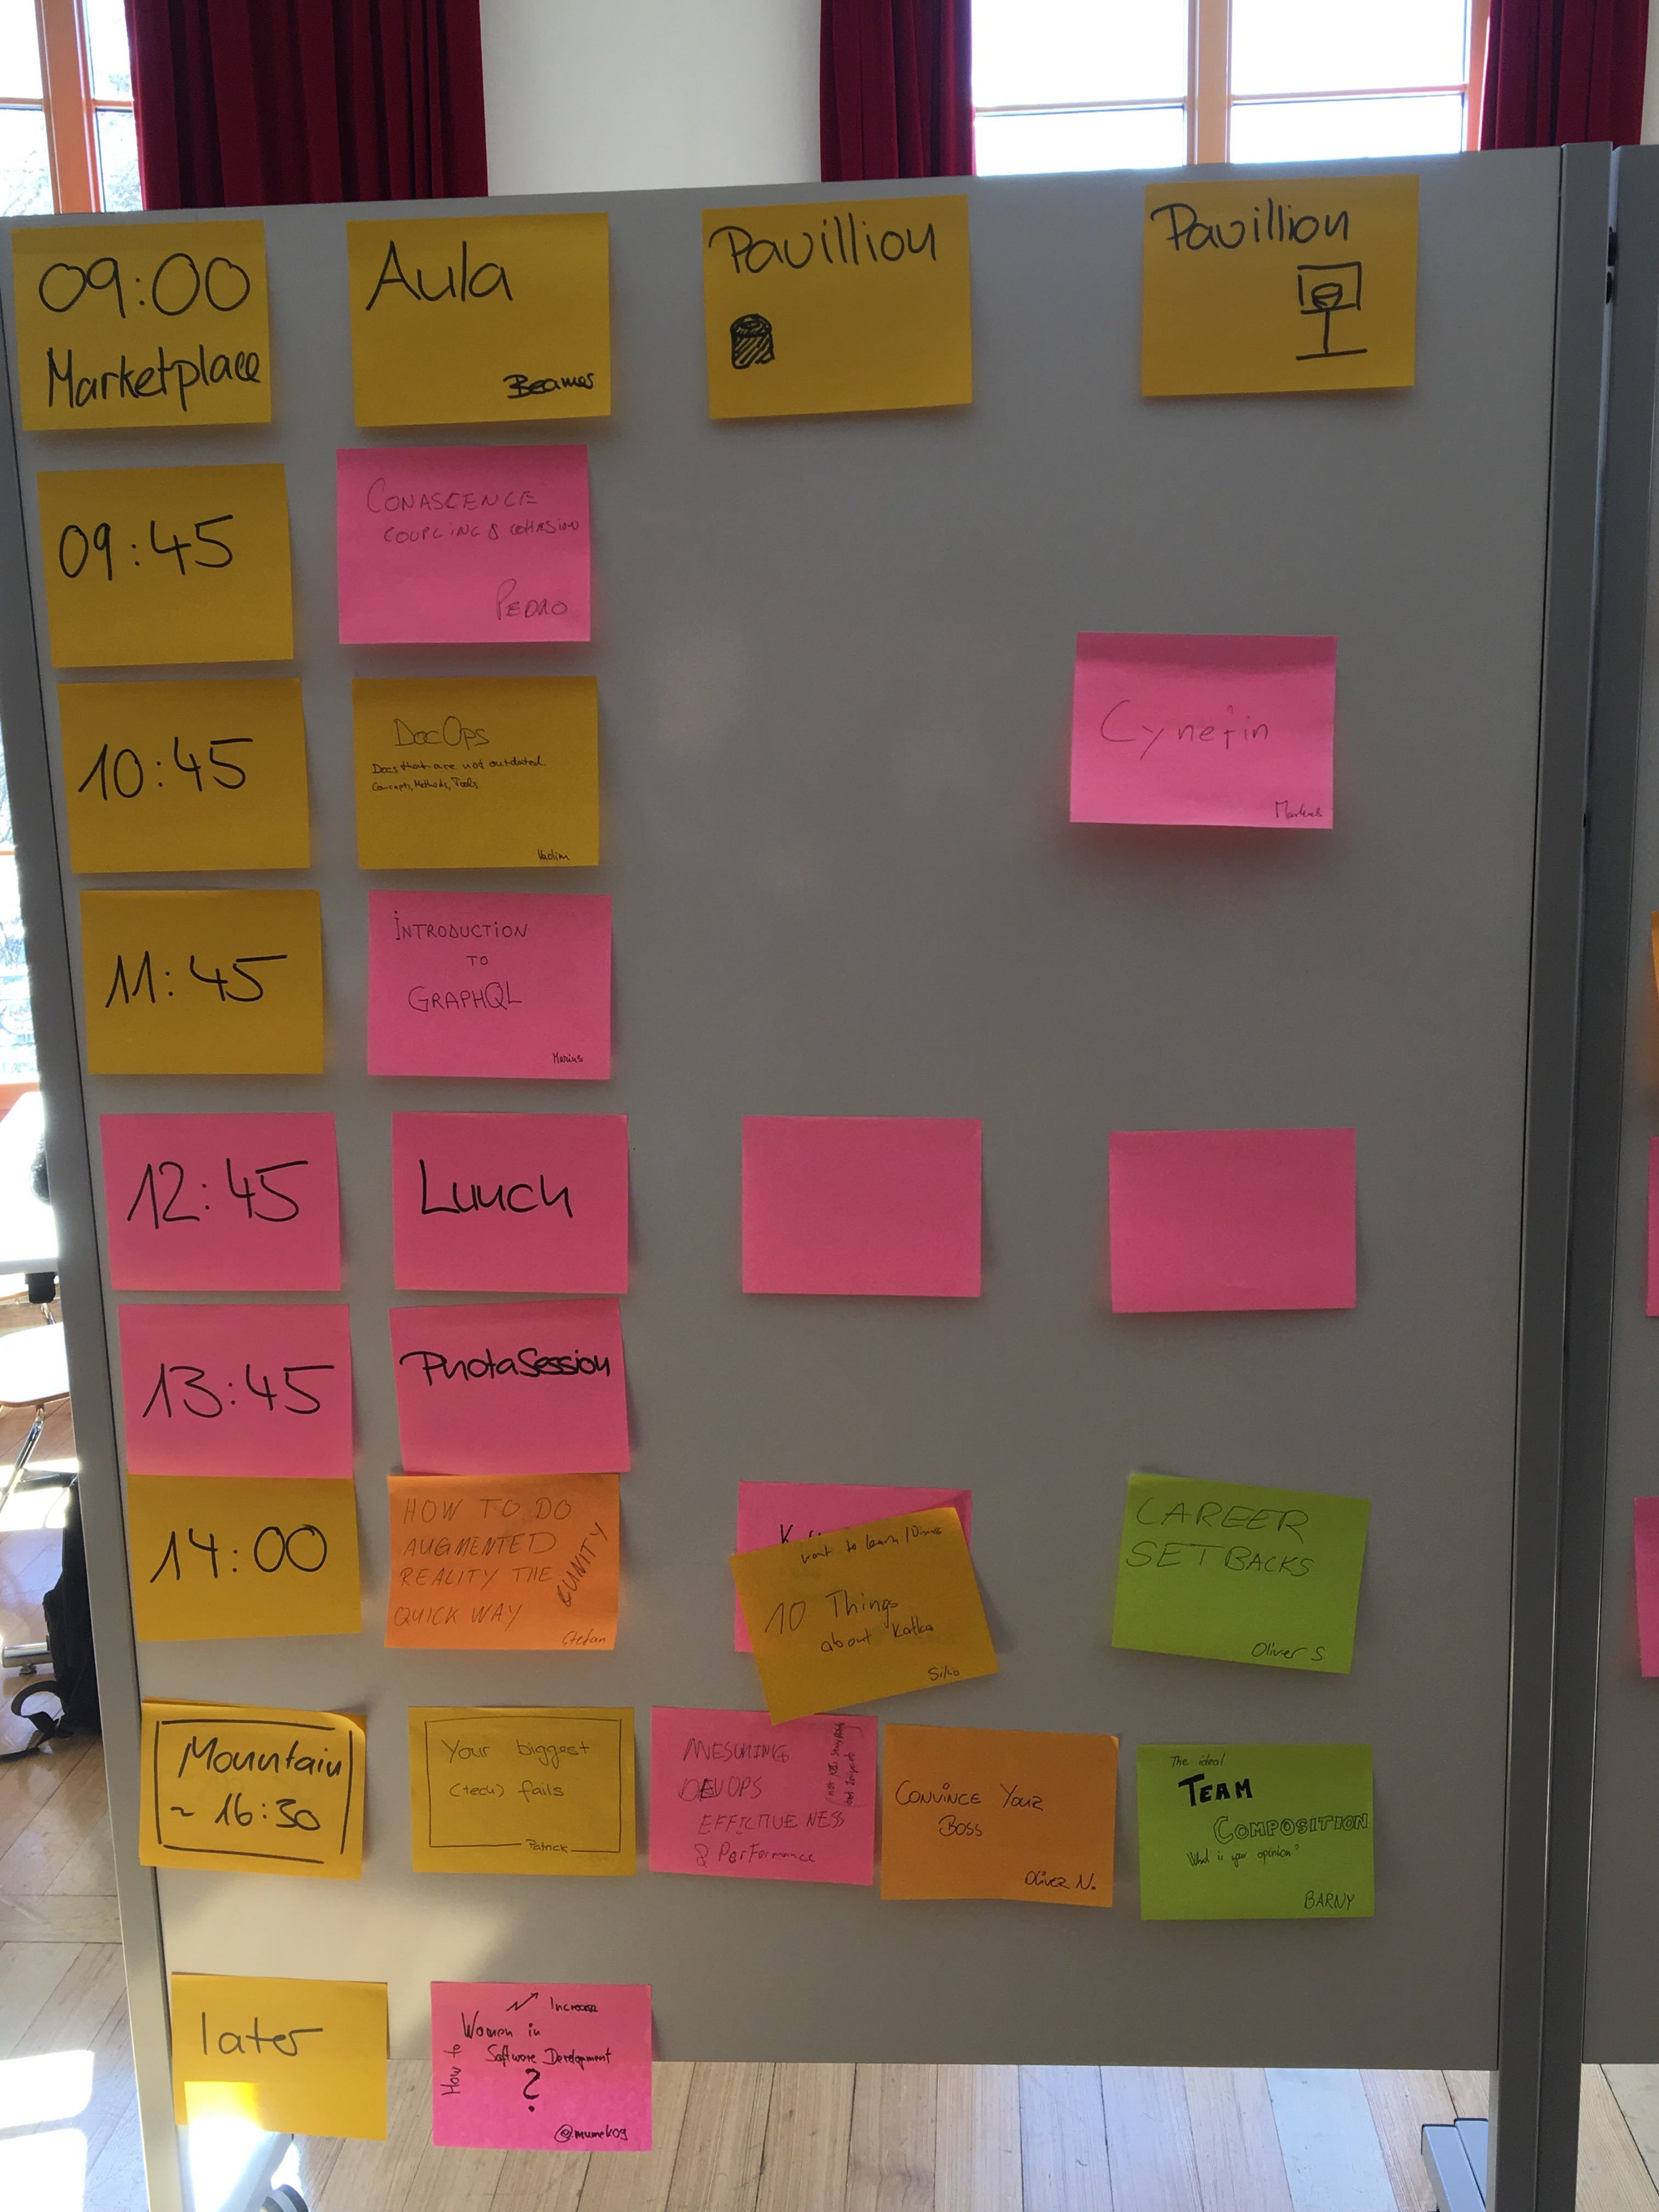 09:00
Marketplace
Aula
Beamer
Pavillion
Pavillion
09:45
CONASCENCE
COUPLING & COHESION
PEDRO
10:45
DocOps
Docs that are not outdated.
Concepts, Methods, Tools
Vadim
Cynefin
Markus
11:45
INTRODUCTION
TO
GRAPHQL
Marius
12:45
Lunch
13:45
PhotoSession
14:00
HOW TO DO
AUGMENTED
REALITY THE
QUICK WAY
UNITY
Stefan
want to learn /
10 Things
about Kafka
CAREER
SETBACKS
Oliver S
Mountain
~ 16:30
Your biggest
(tech) fails
Patrick
MESURING
DEVOPS
EFFECTIVENESS
& Performance
CONVINCE YOUR
BOSS
OLIVER N.
The ideal
TEAM
COMPOSITION
What is your opinion?
BARNY
later
Increase
How to
Women in
Software Development
?